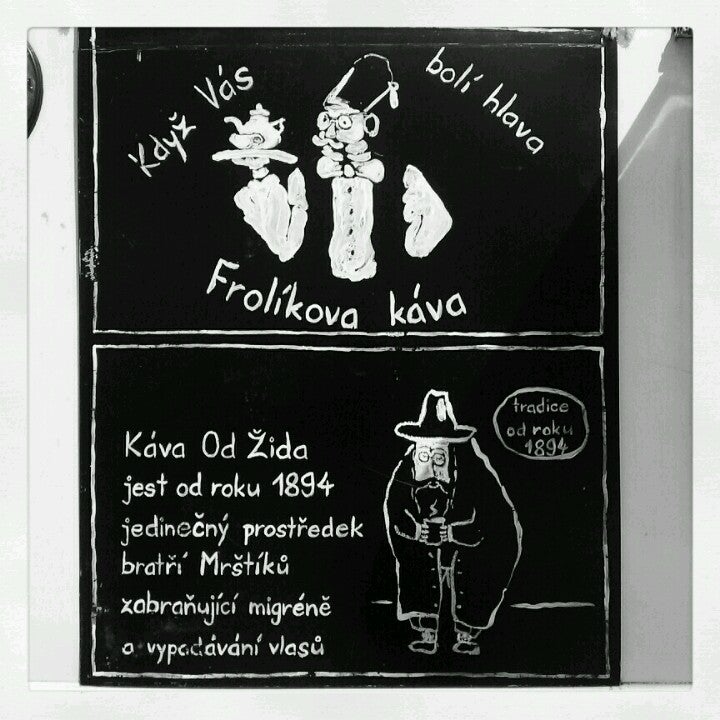 Když Vás
bolí hlava
Frolíkova káva
tradice
od roku
1894
Káva Od Žida
jest od roku 1894
jedinečný prostředek
bratří Mrštíků
zabraňující migréně
a vypadávání vlasů